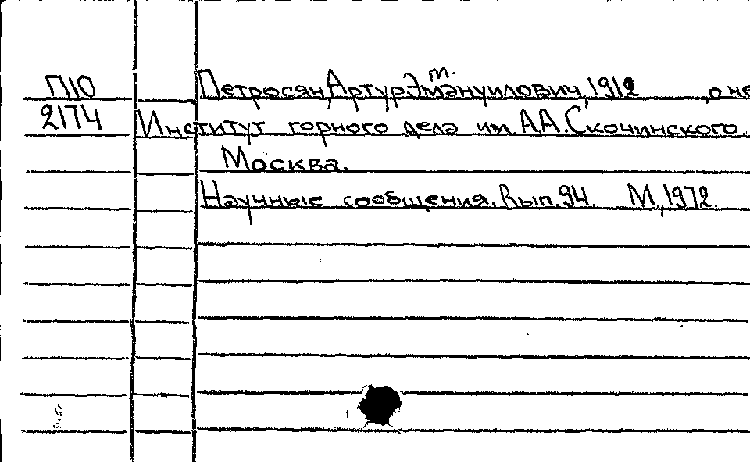 П10 Петросян, Артур Эмануилович, 1912 , о не
m.
2174 Институт горного дела им. А.А. Скочинского.
Москва.
Научные сообщения. Вып. 94. М., 1972.